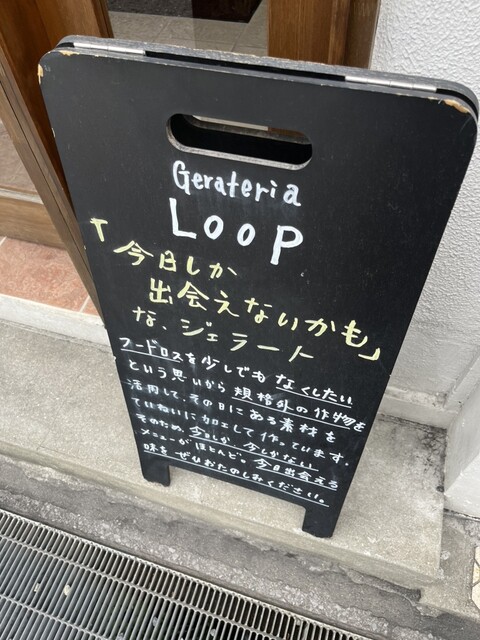 Gerateria
LOOP
「今日しか
出会えないかも」
な、ジェラート
フードロスを少しでもなくしたい
という思いから規格外の作物を
活用して、その日にある素材を
ていねいに加工して作っています。
そのため、今日しか、今しかない
メニューがほとんど。今日出会える
味をぜひおたのしみください。